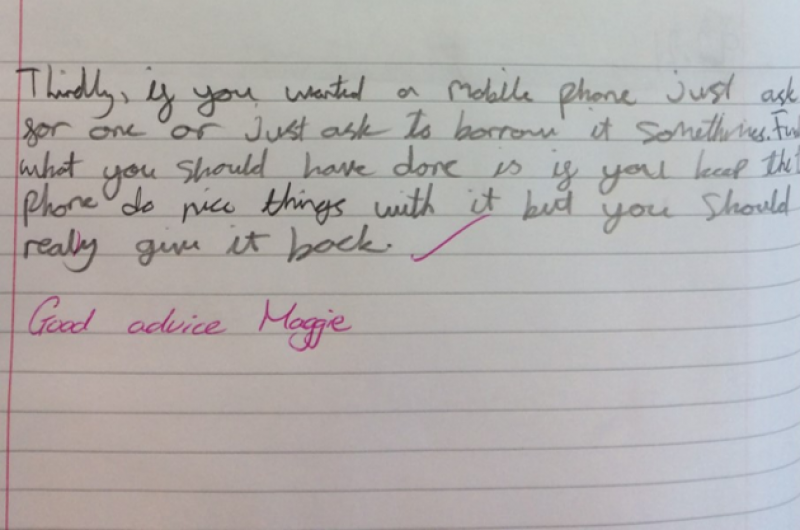 Thirdly, if you wanted a mobile phone just ask
for one or just ask to borrow it somethimes.
what you should have done is if you keep the
phone do nice things with it but you should
really give it back.
Good advice Maggie